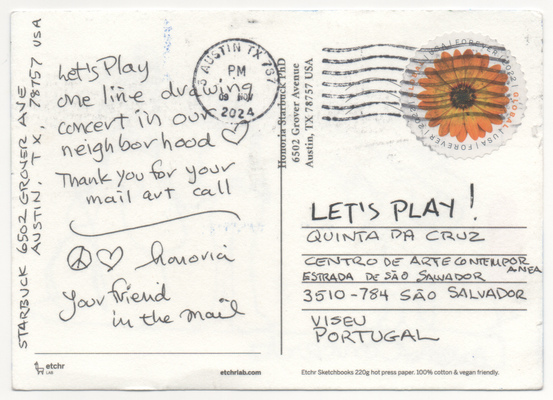 STARBUCK 6502 GROVER AVE
AUSTIN, TX, 78757 USA
Let's Play
one line drawing
concert in our
neighborhood ♡
Thank you for your
mail art call
☮♡ honoria
your friend
in the mail
AUSTIN TX 787
PM
09 NOV
2024
Honoria Starbuck PhD
6502 Grover Avenue
Austin, TX 78757 USA
USA | FOREVER | GLOBAL
LET'S PLAY!
QUINTA DA CRUZ
CENTRO DE ARTE CONTEMPORANEA
ESTRADA DE SÃO SALVADOR
3510-784 SÃO SALVADOR
VISEU
PORTUGAL
etchr
LAB
etchrlab.com
Etchr Sketchbooks 220g hot press paper. 100% cotton & vegan friendly.